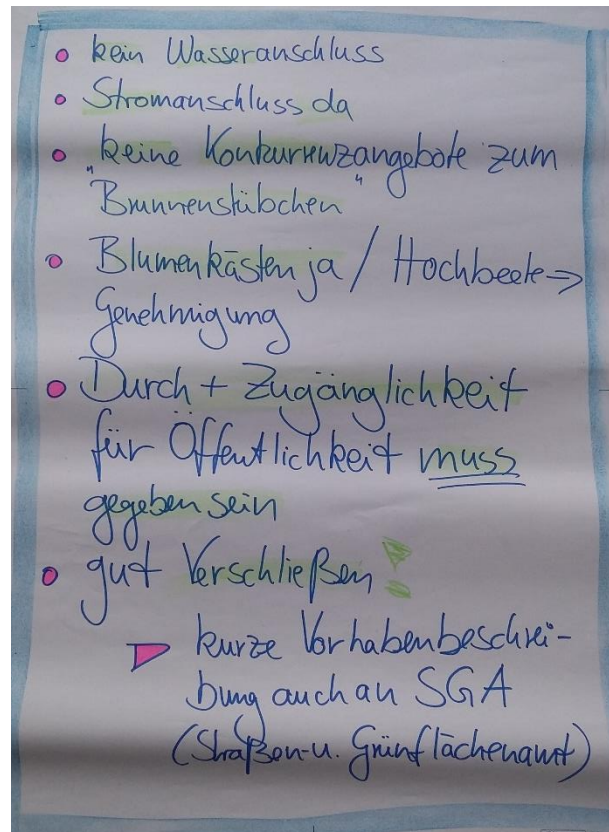 kein Wasseranschluss
Stromanschluss da
"keine Konkurrenzangebote" zum
Brunnenstübchen
Blumenkästen ja / Hochbeete ⇒
Genehmigung
Durch + Zugänglichkeit
für Öffentlichkeit muss
gegeben sein
gut Verschließen!
kurze Vorhabenbeschrei-
bung auch an SGA
(Straßen- u. Grünflächenamt)